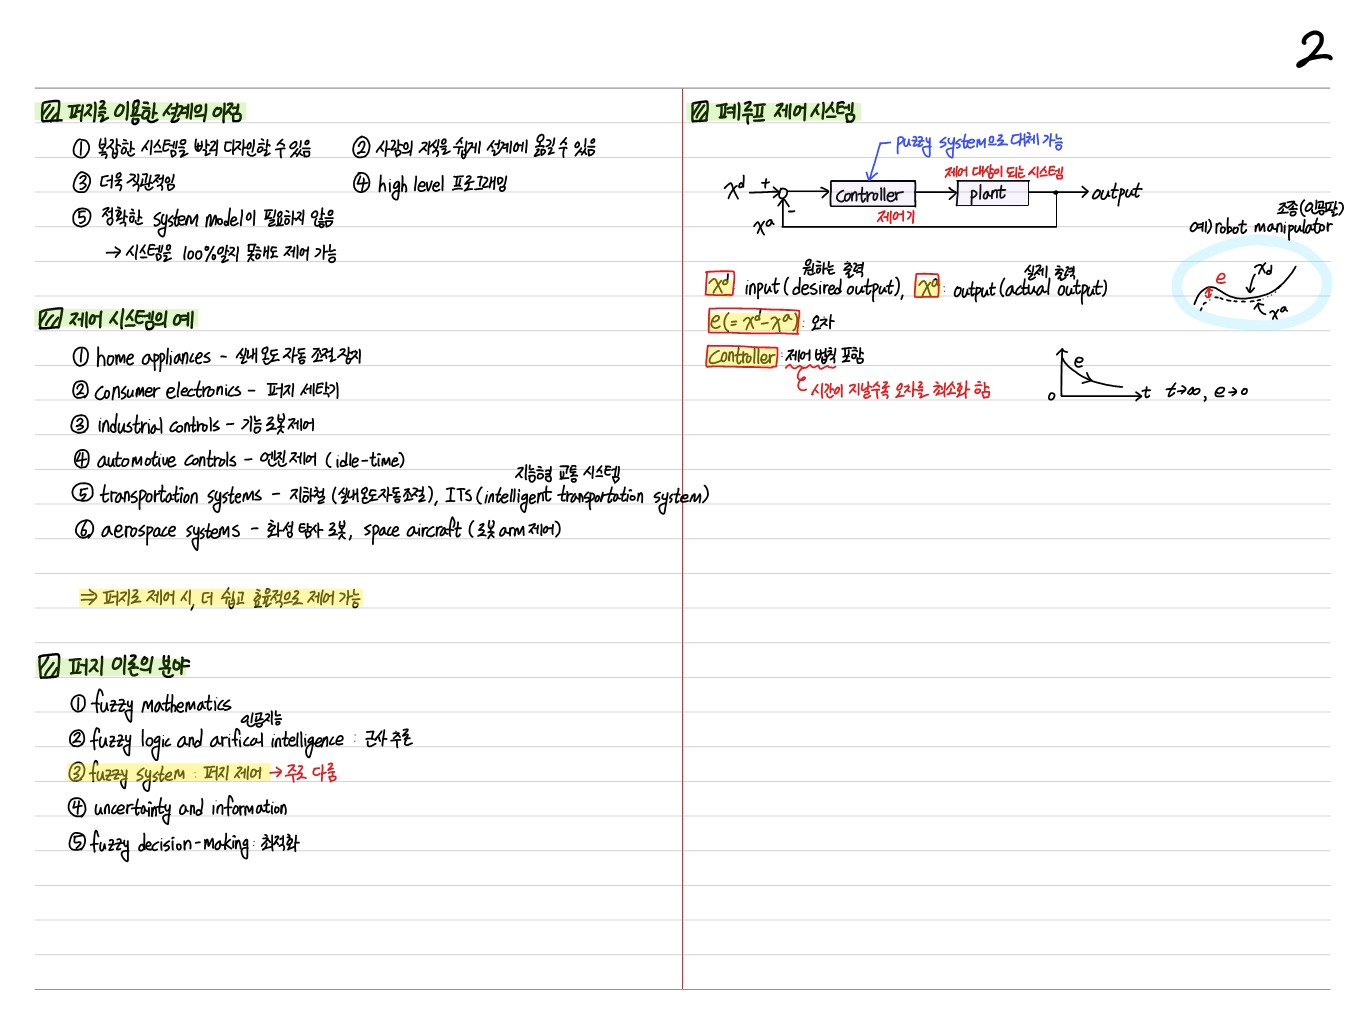 2
퍼지를 이용한 설계의 이점
① 복잡한 시스템을 빨리 디자인할 수 있음 ② 사람의 지식을 쉽게 설계에 옮길 수 있음
③ 더욱 직관적임 ④ high level 프로그래밍
⑤ 정확한 system model이 필요하지 않음
→ 시스템을 100% 알지 못해도 제어 가능
제어 시스템의 예
① home appliances - 실내 온도 자동 조절 장치
② consumer electronics - 퍼지 세탁기
③ industrial controls - 기능 로봇 제어
④ automotive controls - 엔진 제어 (idle-time)
지능형 교통 시스템
⑤ transportation systems - 지하철 (실내온도자동조절), ITS (intelligent transportation system)
⑥ aerospace systems - 화성 탐사 로봇, space aircraft (로봇 arm 제어)
⇒ 퍼지로 제어 시, 더 쉽고 효율적으로 제어 가능
퍼지 이론의 분야
① fuzzy mathematics
인공지능
② fuzzy logic and arifical intelligence : 근사 추론
③ fuzzy system : 퍼지 제어 → 주로 다룸
④ uncertainty and information
⑤ fuzzy decision-making : 최적화
폐루프 제어 시스템
puzzy system으로 대체 가능
제어 대상이 되는 시스템
x^d + controller plant output
제어기
x^a -
조종(인공팔)
예) robot manipulator
e x_d
x^a
원하는 출력 실제 출력
x^d input (desired output), x^a : output (actual output)
e (= x^d - x^a) : 오차
Controller : 제어 법칙 포함
시간이 지날수록 오차를 최소화 함
e
0 t t→∞, e→0